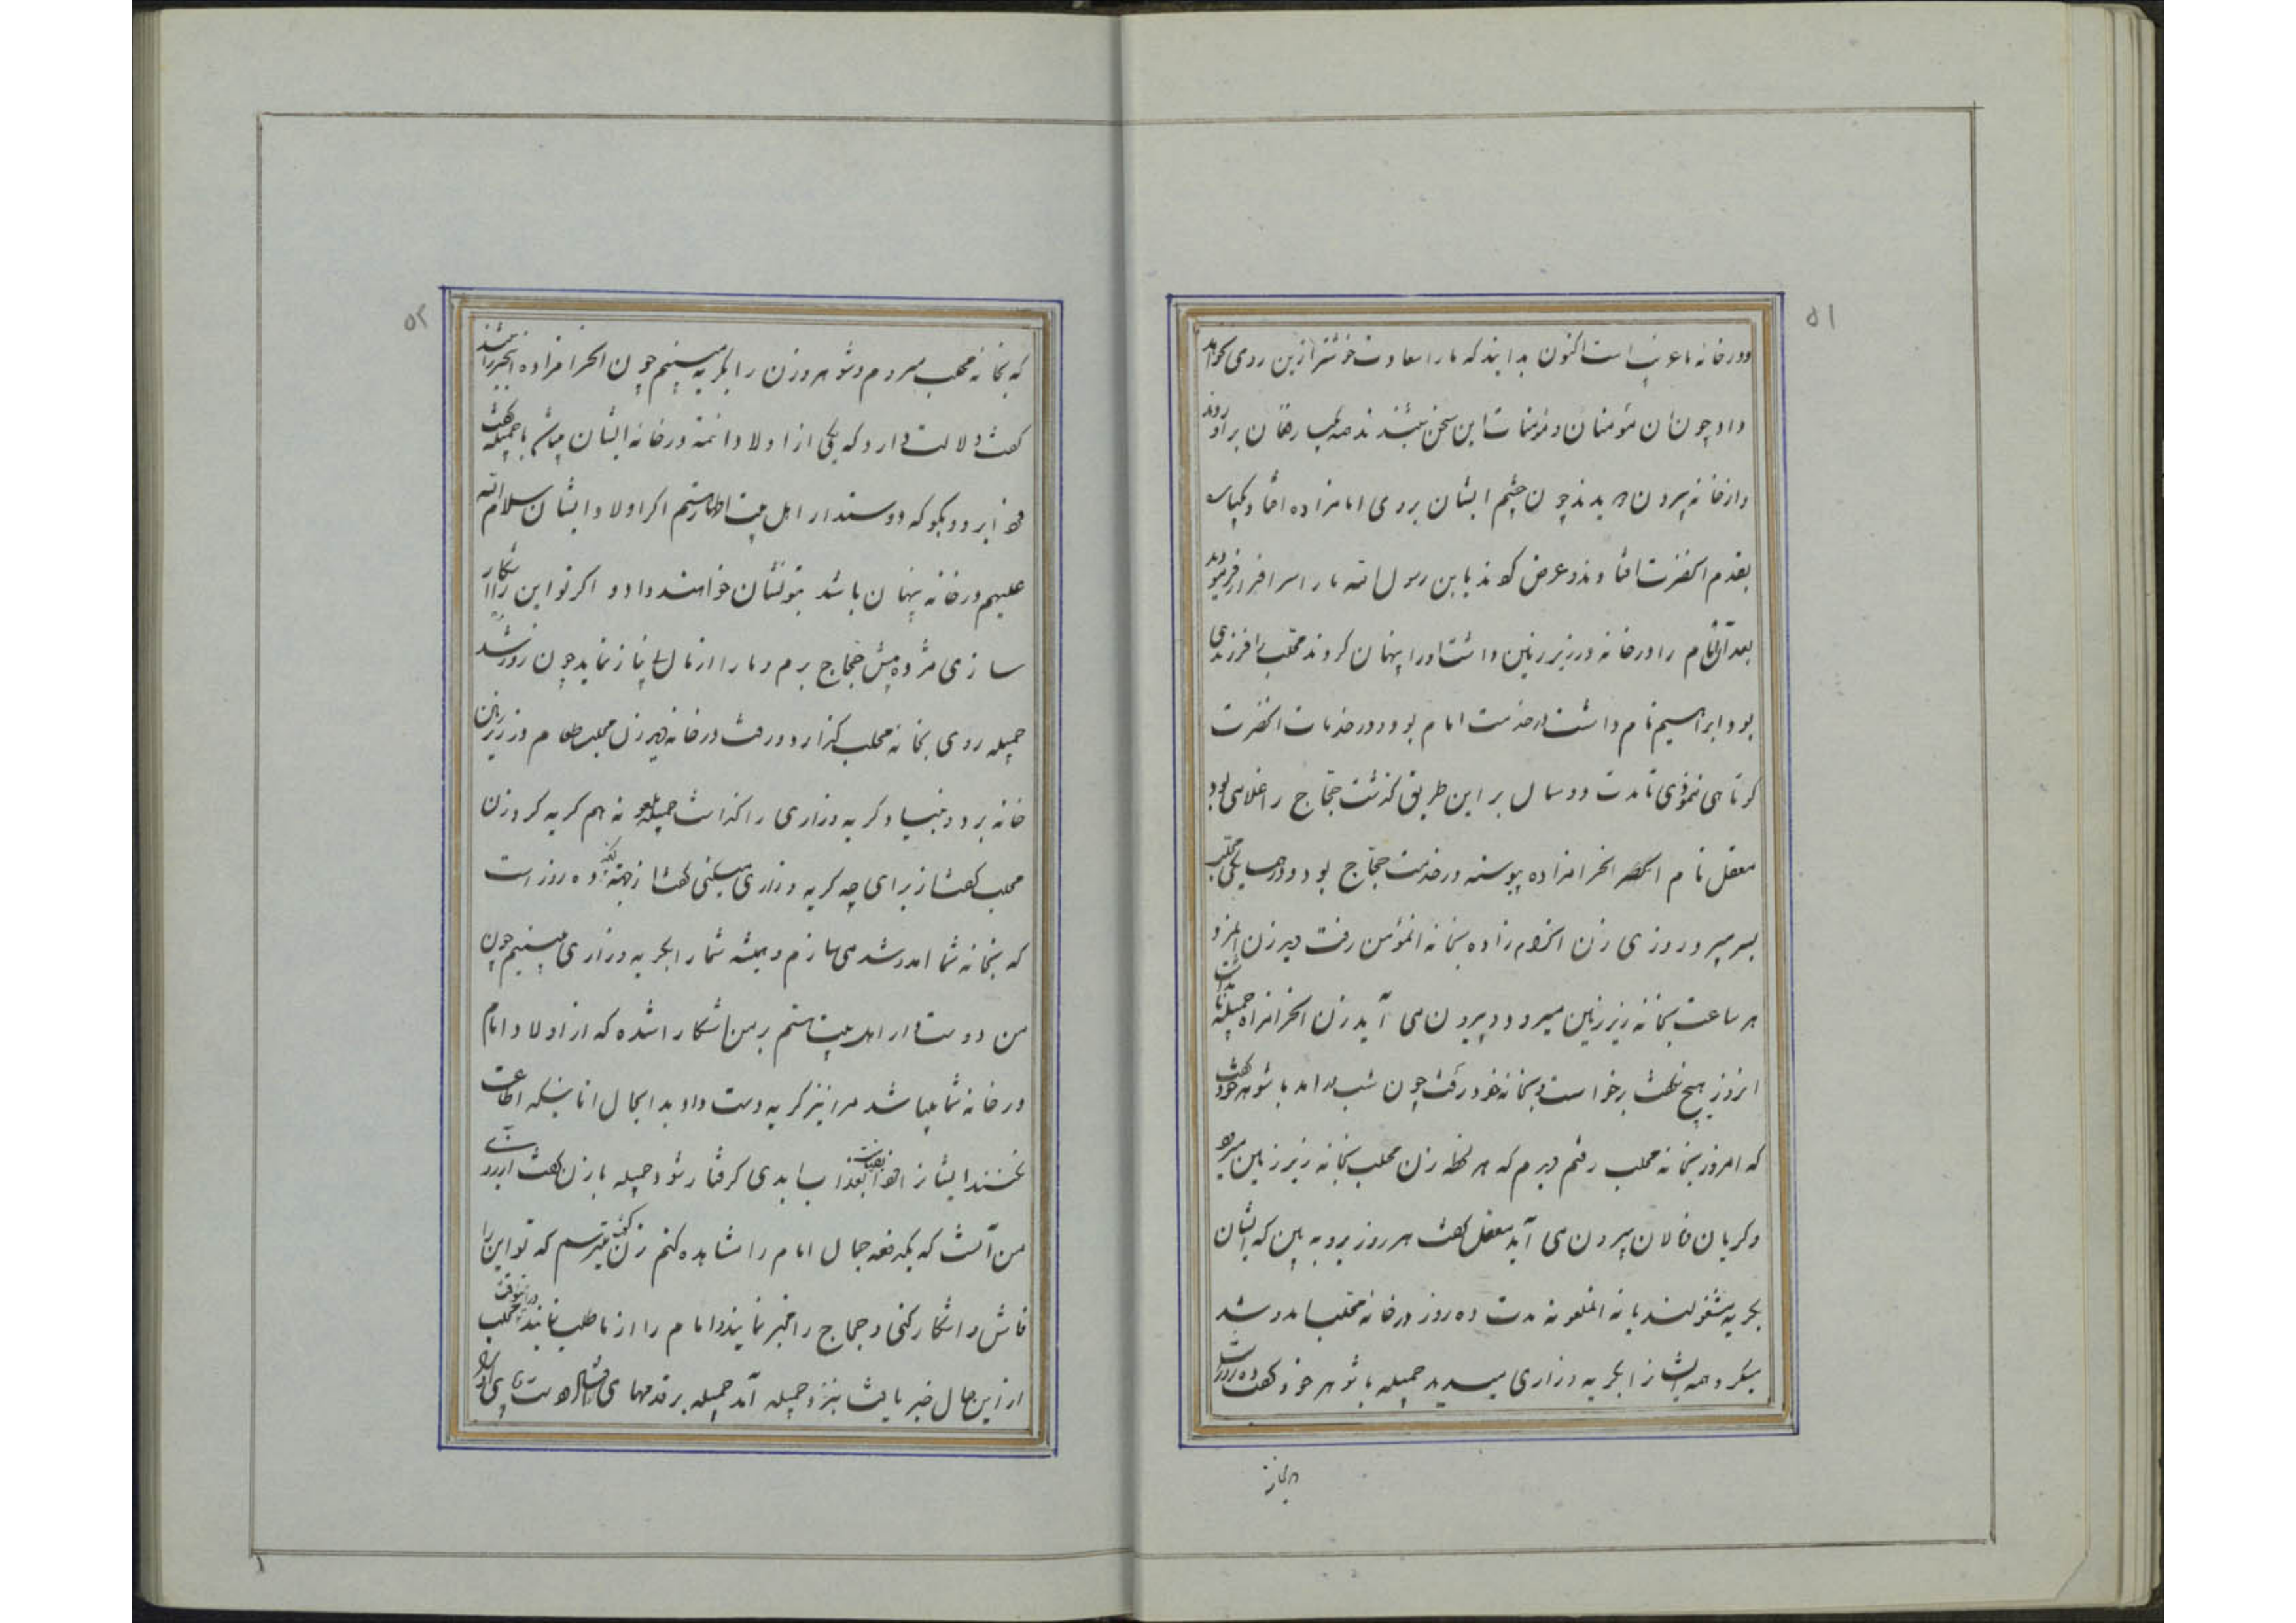 ۵۱
ودر خانه ما غریب است اکنون بدانید که ما را سعادت خوشتر ازین روی نخواهد
داد چون آن مؤمنان و مؤمنات این سخن شنیدند صد طبق رقصان برآوردند
و از خانه بیرون دویدند چون چشم ایشان بروی امامزاده افتاد یکباره
بقدم آنحضرت افتادند و عرض کردند یابن رسول الله ما را سرافراز فرمودید
بعد آن امام را در خانه در زیر زمین داشت او را پنهان کردند محلب را فرزندی
بود ابراهیم نام داشت در خدمت امام بود و در خدمات آنحضرت
کوتاهی ننمودی تا مدت دو سال بر این طریق گذشت حجاج را غلامی بود
معقل نام آن حرامزاده پیوسته در خدمت حجاج بود و در همسایگی محلب
بسر میبرد روزی زن آن حرامزاده بخانه آن مؤمن رفت دید زن آن مرد
هر ساعت بخانه زیر زمین میرود و بیرون می آید زن آن حرامزاده جمیله نام داشت
آنروز هیچ نگفت برخواست و بخانه خود رفت چون شب درآمد با شوهر خود گفت
که امروز بخانه محلب رفتم دیدم که هر لحظه زن محلب بخانه زیر زمین میرود
و گریان و نالان بیرون می آید معقل گفت هر روز برو به بین که ایشان
بچه مشغولند یا نه آن ملعونه مدت ده روز در خانه محلب آمد و شد
میکرد و همه ایشان را بگریه و زاری میدید جمیله با شوهر خود گفت ده روز است
۵۲
که بخانه محلب میروم و شوهر و زن را بگریه میبینم چون آن حرامزاده این خبر را شنید
گفت دلالت دارد که یکی از اولاد ائمه در خانه ایشان میباشد با جمیله گفت
فردا برو و بگو که دوستدار اهل بیت اطهار هستم اگر اولاد ایشان سلام الله
علیهم در خانه پنهان باشد بتو نشان خواهند داد و اگر تو این را آشکار
سازی مژده پیش حجاج برم و ما را از مال بی نیاز نماید چون روز شد
جمیله روی بخانه محلب گذارد و رفت در خانه دید زن محلب طعام در زیر زمین
خانه برد و بنیاد گریه و زاری را گذاشت جمیله ملعونه هم گریه کرد زن
محلب گفت از برای چه گریه و زاری میکنی گفت از جهة آنکه ده روز است
که بخانه شما آمد و شد می سازم و همیشه شما را بگریه و زاری میبینیم چون
من دوستدار اهل بیت هستم بر من آشکارا شده که از اولاد امام
در خانه شما میباشد مرا نیز گریه دست داد بدان حال اما بسکه اطاعت
نکنند ایشان را فردا قیامت بعذاب ابدی گرفتار شود جمیله با زن گفت آرزوی
من آنست که یکدفعه جمال امام را مشاهده کنم زن گفت میترسم که تو این را
فاش و آشکار کنی و حجاج را خبر نمایند و امام را از ما طلب نمایند در اینوقت محلب
از این حال خبر یافت نزد جمیله آمد جمیله بر قدمهای